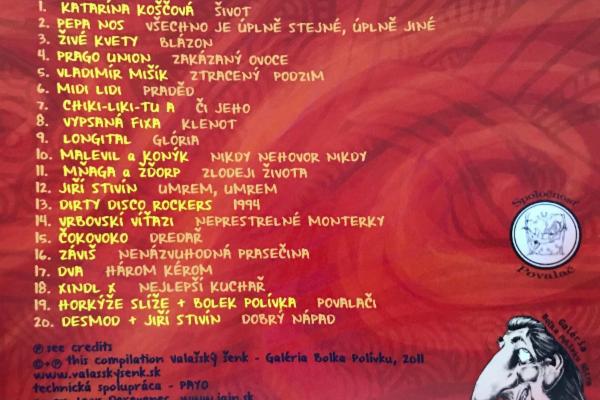 1. KATARÍNA KOŠČOVÁ ŽIVOT
2. PEPA NOS VŠECHNO JE ÚPLNĚ STEJNÉ, ÚPLNĚ JINÉ
3. ŽIVÉ KVETY BLÁZON
4. PRAGO UNION ZAKÁZANÝ OVOCE
5. VLADIMÍR MIŠÍK ZTRACENÝ PODZIM
6. MIDI LIDI PRADĚD
7. CHIKI-LIKI-TU A ČI JEHO
8. VYPSANÁ FIXA KLENOT
9. LONGITAL GLÓRIA
10. MALEVIL a KONÝK NIKDY NEHOVOR NIKDY
11. MŇAGA a ŽĎORP ZLODEJI ŽIVOTA
12. JIŘÍ STIVÍN UMREM, UMREM
13. DIRTY DISCO ROCKERS 1994
14. VRBOVSKÍ VÍŤAZI NEPRESTRELNÉ MONTERKY
15. ČOKOVOKO DREDAŘ
16. ZÁVIŠ NENÁZVUHODNÁ PRASEČINA
17. DVA HÁROM KÉROM
18. XINDL X NEJLEPŠÍ KUCHAŘ
19. HORKÝŽE SLÍŽE + BOLEK POLÍVKA POVALAČI
20. DESMOD + JIŘÍ STIVÍN DOBRÝ NÁPAD
Spoločnosť
Povalač
℗ see credits
©+℗ this compilation Valašský šenk - Galéria Bolka Polívku, 2011
www.valasskysenk.sk
technická spolupráca - PAYO
www.jain.sk
Galéria